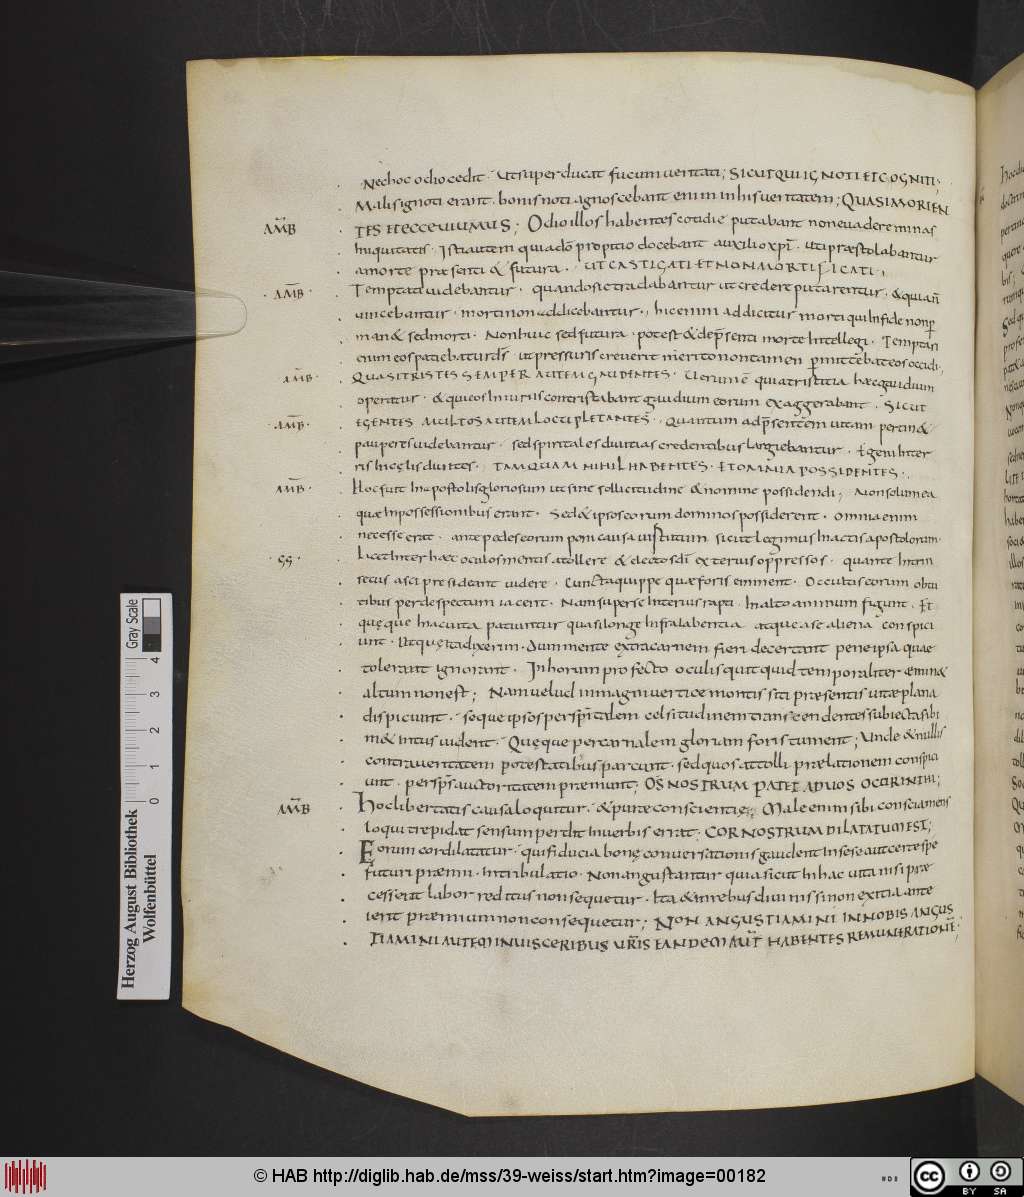 Nec hoc odio cedit · Ut superducat fucum veritati; SICUT QUI IGNOTI ET COGNITI;
Malis ignoti erant · bonis noti agnoscebant enim in his veritatem; QUASI MORIEN
AMB TES ET ECCE VIVIMUS; Odio illos habentes cotidie putabant non evadere minas
iniquitatis · Isti autem quia dō propitio docebant auxilio xp̄i · uti præstolabantur
a morte præsenti & futura · UT CASTIGATI ET NON MORTIFICATI ·
AMB Temptati videbantur · quando sic tradabantur ut credere putarentur · & quia n̄
vincebantur · morti non addicebantur · hic enim addicitur morti qui infide non p̄
man& sed morti · Non huic sed futura · potest & de p̄senti morte intellegi · Temptari
enim eos patiebatur d̄s · ut pressuris creverit meritō non tamen p̄mittebat eos occidi;
AMB QUASI TRISTES SEMPER AUTEM GAUDENTES · Verum ē quia tristitia hæc gaudium
operatur · & qui eos iniuriis contristabant gaudium eorum exaggerabant · SICUT
AMB EGENTES MULTOS AUTEM LOCUPLETANTES · Quantum ad p̄sentem vitam pertin&
pauperes videbantur · sed spiritales divitias credentibus largiebantur · Egeni in ter
ris in cęlis divites · TAMQUAM NIHIL HABENTES · ET OMNIA POSSIDENTES ·
AMB Hoc fuit in apostolis gloriosum ut sine sollicitudine & nomine possidendi; Non solum ea
quæ in possessionibus erant · Sed & ipsos eorum dominos possiderent · Omnia enim
necesse erat · ante pedes eorum poni causa iustitium sicut legimus in actis apostolorum ·
GG Licet inter hæc oculos mentis attollere & electos dī exterius oppressos · quante intrin
secus arci presideant videre · Cuncta quippe quæ foris eminent · Occultis eorum obtu
tibus per despectum iacent · Nam super se interius rapti · In alto animum figunt · Et
quęque in hac vita patiuntur quasi longe infra labentia atque a se aliena conspici
unt · Utque ita dixerim · dum mente extra carnem fieri decertant pene ipsa quæ
tolerant ignorant · In horum profecto oculis quitquid temporaliter emin&
altum non est; Nam velud in magni vertice montis siti præsentis vitæ plana
dispiciunt · seque ipsos per sp̄italem celsitudinem transcendentes subiecta sibi
m& intus vident · Quęque per carnalem gloriam foris tument; Unde & nullis
contra veritatem potestatibus parcunt · sed quos attolli præ elationem conspici
unt · per sp̄s auctoritatem præmunt; OS NOSTRUM PATET AD VOS O CORINTHI;
AMB Hoc libertatis causa loquitur · & puræ conscientię; Male enim sibi consciamens
loqui trepidat sensum perdit in verbis errat · COR NOSTRUM DILATATUM EST;
Eorum cor dilatatur · qui fiducia bonę conversationis gaudent in se se aut certe spe
futuri præmii · In tribulatio · Non angustantur quia sicut in hac vita nisi præ
cesserit labor reditus non sequetur · Ita & in rebus divinis si non extra ante
ierit præmium non consequetur; NON ANGUSTIAMINI IN NOBIS ANGUS
TIAMINI AUTEM IN VISCERIBUS VR̄IS EANDEM AUT̄ HABENTES REMUNERATIONĒ;
Herzog August Bibliothek
Wolfenbüttel
0 1 2 3 4
Gray Scale
© HAB http://diglib.hab.de/mss/39-weiss/start.htm?image=00182
cc BY SA